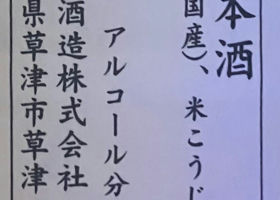 本酒
国産)、米こうじ
アルコール分
酒造株式会社
県草津市草津